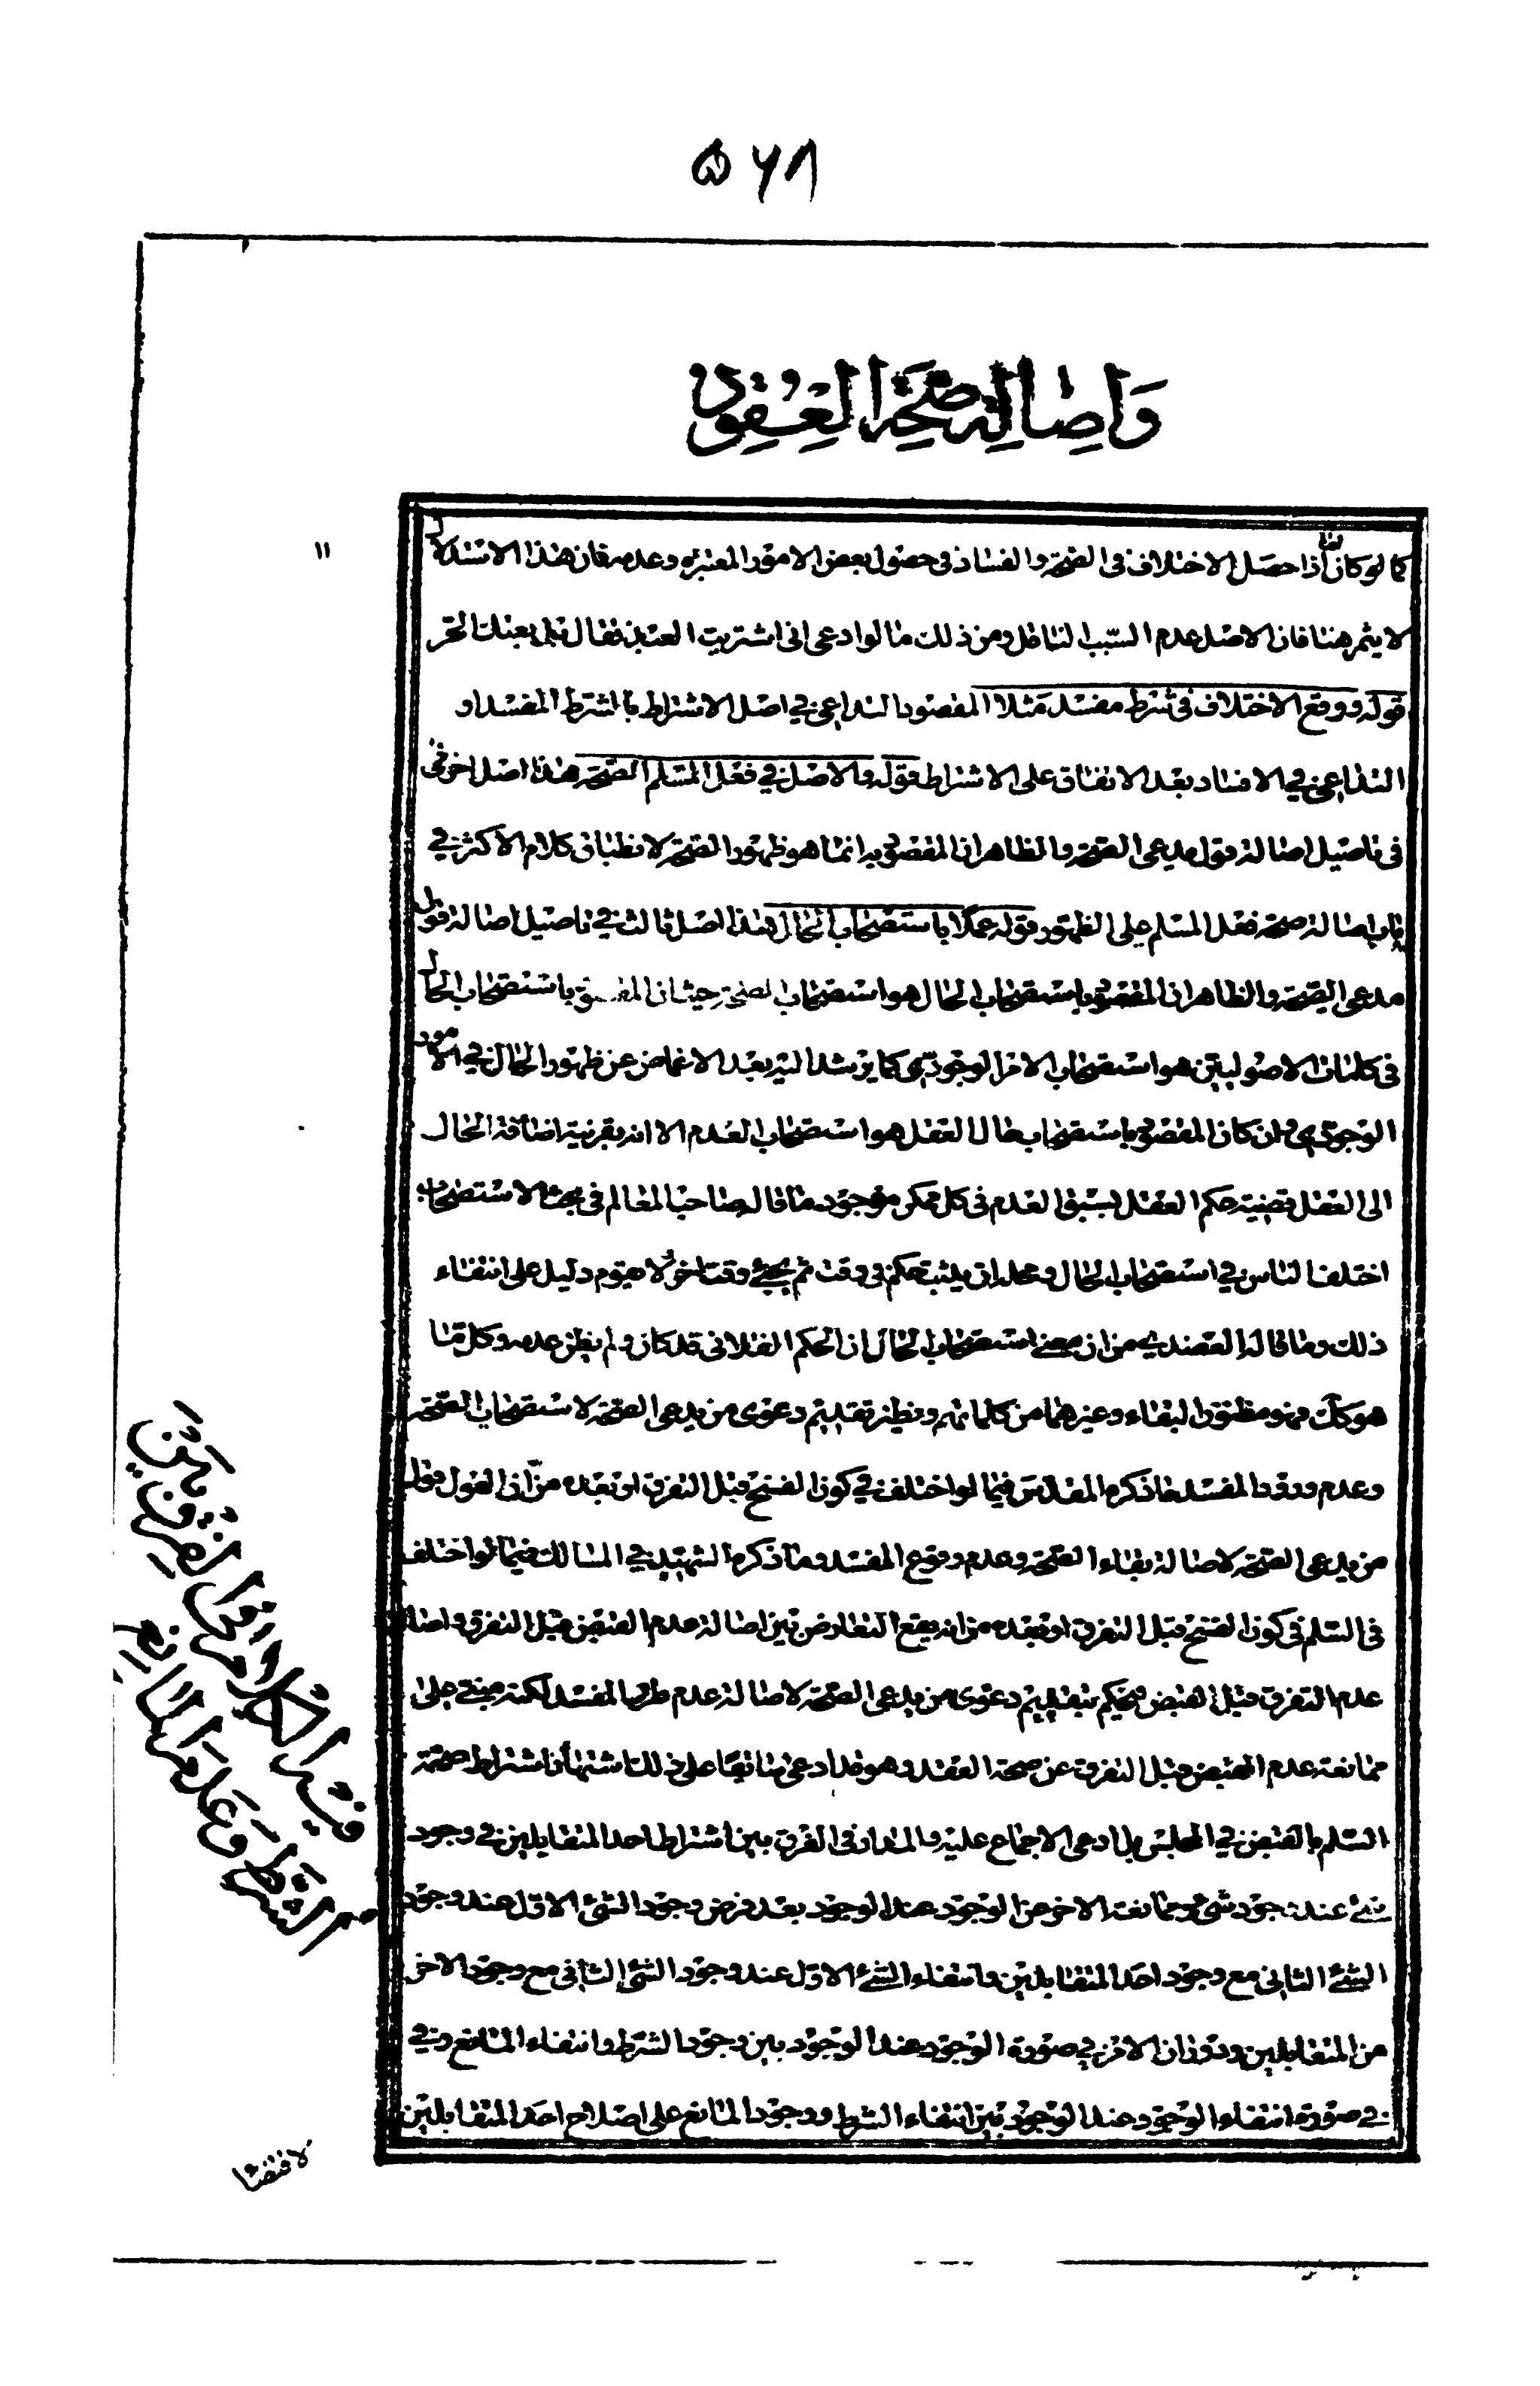 ٥٦٨
واصالة صحة العقود
كما لو كان اذا حصل الاختلاف فى الصحة والفساد فى حصول بعض الامور المعتبرة وعدمه فان هذا الاستدلال
لا يثمر هنا فان الاصل عدم السبب الناقل ومن ذلك ما لو ادعى انى اشتريت العبد فقال بل بعتك الحر
قوله ووقع الاختلاف فى شرط مفسد مثلا المقصود التداعى فى اصل الاشتراط بالشرط المفسد او
التداعى فى الافساد بعد الاتفاق على الاشتراط قوله والاصل فى فعل المسلم الصحة هذا اصل اخر
فى تاصيل اصالة قول مدعى الصحة والظاهر ان المقصود به انما هو ظهور الصحة لانطباق كلام الاكثر فى
باب اصالة صحة فعل المسلم على الظهور قوله عملا باستصحاب الحال هذا اصل ثالث فى تاصيل اصالة قول
مدعى الصحة والظاهر ان المقصود باستصحاب الحال هو استصحاب الصحة حيث ان المقصود باستصحاب الحال
فى كلمات الاصوليين هو استصحاب الامر الوجودى كما يرشد اليه بعد الاغماض عن ظهور الحال فى الامور
الوجودى وان كان المقصود باستصحاب حال العقل هو استصحاب العدم الا انه بقرينة اضافة الحال
الى العقل قضية حكم العقل بسبق العدم فى كل ممكن موجود ما قاله صاحب المعالم فى بحث الاستصحاب
اختلف الناس فى استصحاب الحال ومحله ان يثبت حكم فى وقت ثم يجئ وقت اخر ولا يقوم دليل على انتفاء
ذلك وما قاله العضدى من ان معنى استصحاب الحال ان الحكم الفلانى قد كان ولم يظن عدمه وكل ما
هو كك فهو مظنون البقاء وغيرهما من كلماتهم ونظير تقديم دعوى من يدعى الصحة لاستصحاب الصحة
وعدم ورود المفسد ما ذكره المقدس فيما لو اختلف فى كون الفسخ قبل التفرق او بعده من ان القول قول
من يدعى الصحة لاصالة بقاء الصحة وعدم وقوع المفسد وما ذكره الشهيد فى المسالك فيما لو اختلف
فى السلم فى كون الفسخ قبل التفرق او بعده من انه يقع التعارض بين اصالة عدم القبض قبل التفرق واصالة
عدم التفرق قبل القبض فيحكم بتقديم دعوى من يدعى الصحة لاصالة عدم طرو المفسد لكنه مبنى على
ممانعة عدم القبض قبل التفرق عن صحة العقد وهو قد ادعى
اشتراط صحة
السلم بالقبض فى المجلس بل ادعى الاجماع عليه والمدار فى الفرق بين اشتراط احد المتقابلين فى وجود
شئ عند وجود شئ وممانعة الاخر عن الوجود عند الوجود بعد فرض وجود الشئ الاول عند وجود
الشئ الثانى مع وجود احد المتقابلين وانتفاء الشئ الاول عند وجود الشئ الثانى مع وجود الاخر
من المتقابلين ودوران الامر فى صورة الوجود عند الوجود بين وجود الشرط وانتفاء المانع وفى
فى صورة انتفاء الوجود عند الوجود بين انتفاء الشرط ووجود المانع على اصلاح احد المتقابلين
فى الكلام فى الفرق بين
الشرط وعدم المانع
لاقتضا